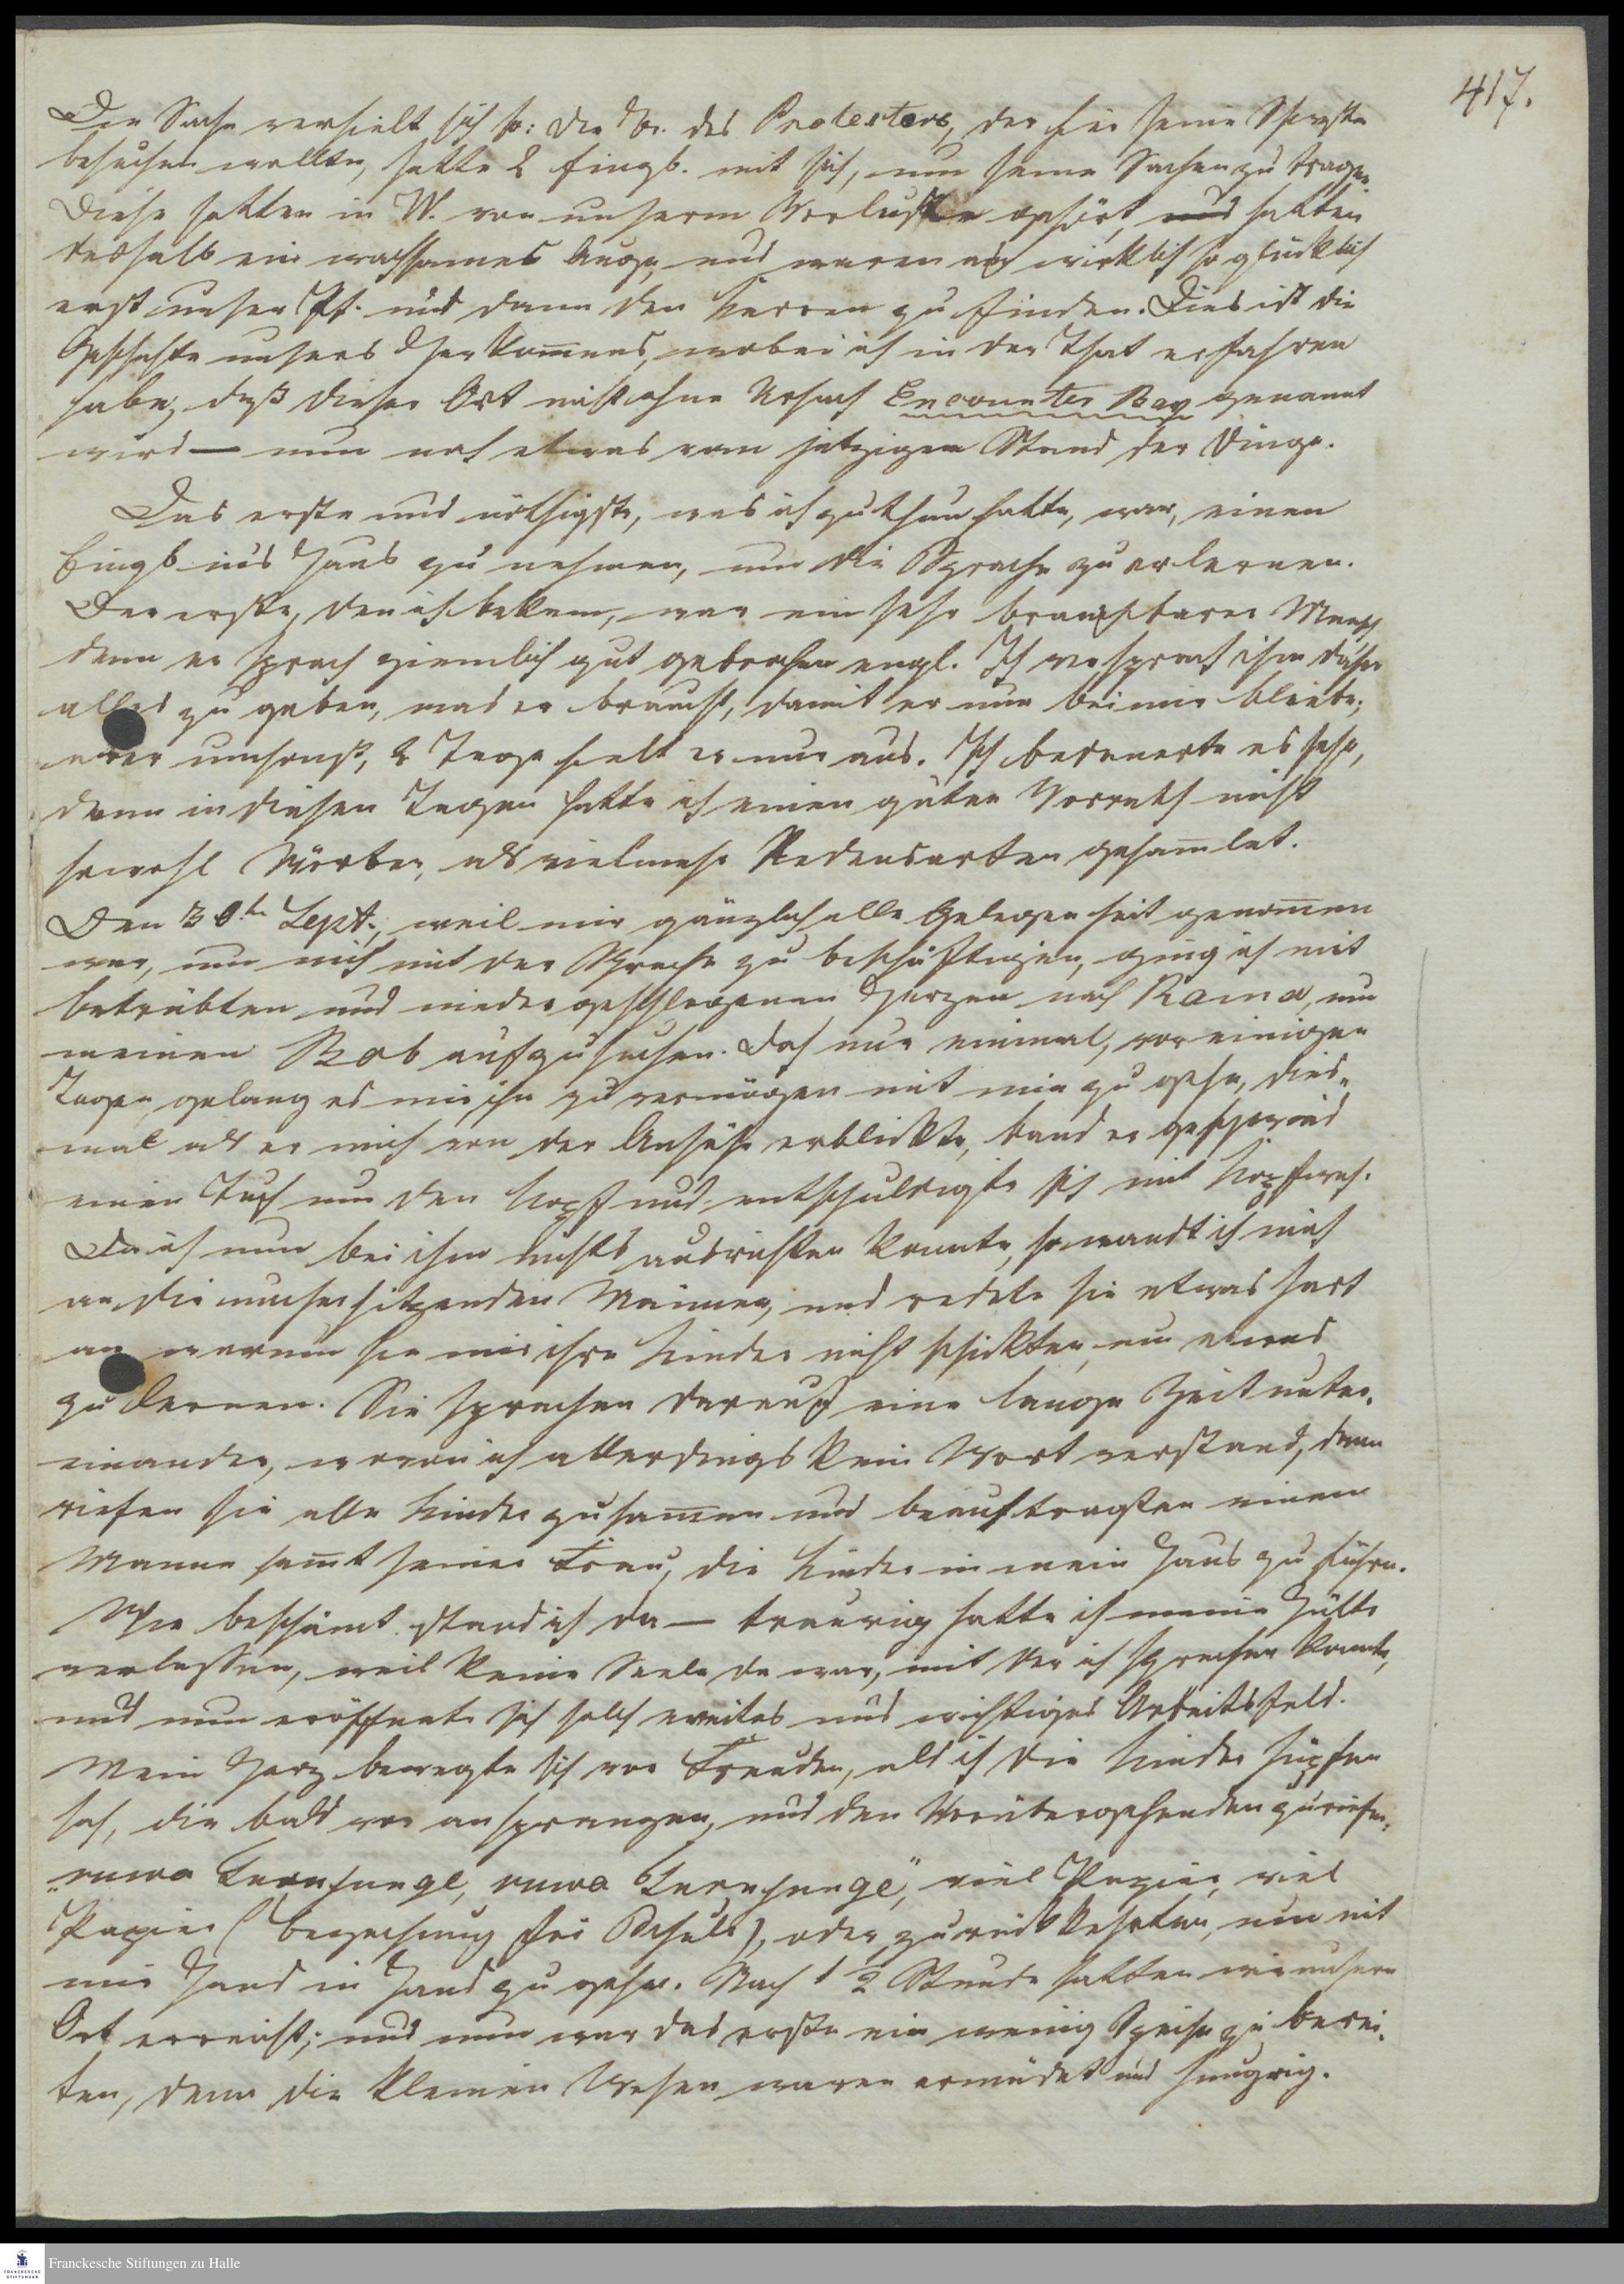 417.
Die Sache verhielt sich so: Der Br. des Protectors, der hier seine Schwester
besuchen wollte, hatte 2 Eingb. mit sich, um seine Sachen zu tragen.
Diese hatten in W. von unserm Verluste gehört, und hatten
deshalb ein wachsames Auge, und waren auch wirklich so glücklich
erst unser Pf. und dann den Karren zu finden. Dies ist die
Geschichte unsers Herkom̅ens, wobei ich in der That erfahren
habe, daß dieser Ort nicht ohne Ursach Encounter Bay genannt
wird — nun noch etwas vom jetzigen Stand der Dinge.
Das erste und nöthigste, was ich zu thun hatte, war, einen
Eingb. ins Haus zu nehmen, um die Sprache zu erlernen.
Der erste, den ich bekam, war ein sehr brauchbarer Mensch,
denn er sprach ziemlich gut gebrochen engl. Ich versprach ihm daher
alles zu geben, was er braucht, damit er nur bei mir bliebe;
aber umsonst, 2 Tage hielt er nur aus. Ich bedauerte es sehr,
denn in diesen Tagen hatte ich einen guten Vorrath nicht
sowohl Wörter, als vielmehr Redensarten gesam̅let.
Den 30ten Sept., weil mir gänzlich alle Gelegenheit genom̅en
war, um mich mit der Sprache zu beschäftigen, ging ich mit
betrübten und niedergeschlagenen Herzen nach Rama, um
meinen Bob aufzusuchen. Doch nur einmal, vor einigen
Tagen gelang es mir ihn zu vermögen mit mir zu gehn, dies„
mal als er mich von der Anhöhe erblickte, band er geschwind
einen Tuch um den Kopf und entschuldigte sich mit Kopfweh.
Da ich nun bei ihm nichts ausrichten konnte, so wandt ich mich
an die umher sitzenden Männer, und redete sie etwas hart
an warum sie mir ihre Kinder nicht schickten, um etwas
zu lernen. Sie sprachen darauf eine lange Zeit unter„
einander, wovon ich allerdings kein Wort verstand, dann
riefen sie alle Kinder zusam̅en und beauftragten einen
Mann sam̅t seiner Frau, die Kinder in mein Haus zu führen.
Wie beschämt stand ich da — traurig hatte ich meine Hütte
verlassen, weil keine Seele da war, mit der ich sprechen konnte,
und nun eröffnete sich solch weites und wichtiges Arbeitsfeld.
Mein Herz bewegte sich vor Freuden, als ich die Kinder hüpfen
sah, die bald vor an sprangen, und den Vorübergehenden zuriefen,
viel Papier, viel
Papier ( für Schule), oder zurückkehrten, um mit
mir Hand in Hand zu gehen. Nach 1 2 Stunde hatten wir unsern
Ort erreicht; und nun war das erste ein wenig Speise zu berei„
ten, denn die kleinen Wesen waren ermüdet und hungrig.
Franckesche Stiftungen zu Halle
FRANCKESCHE
STIFTUNGEN